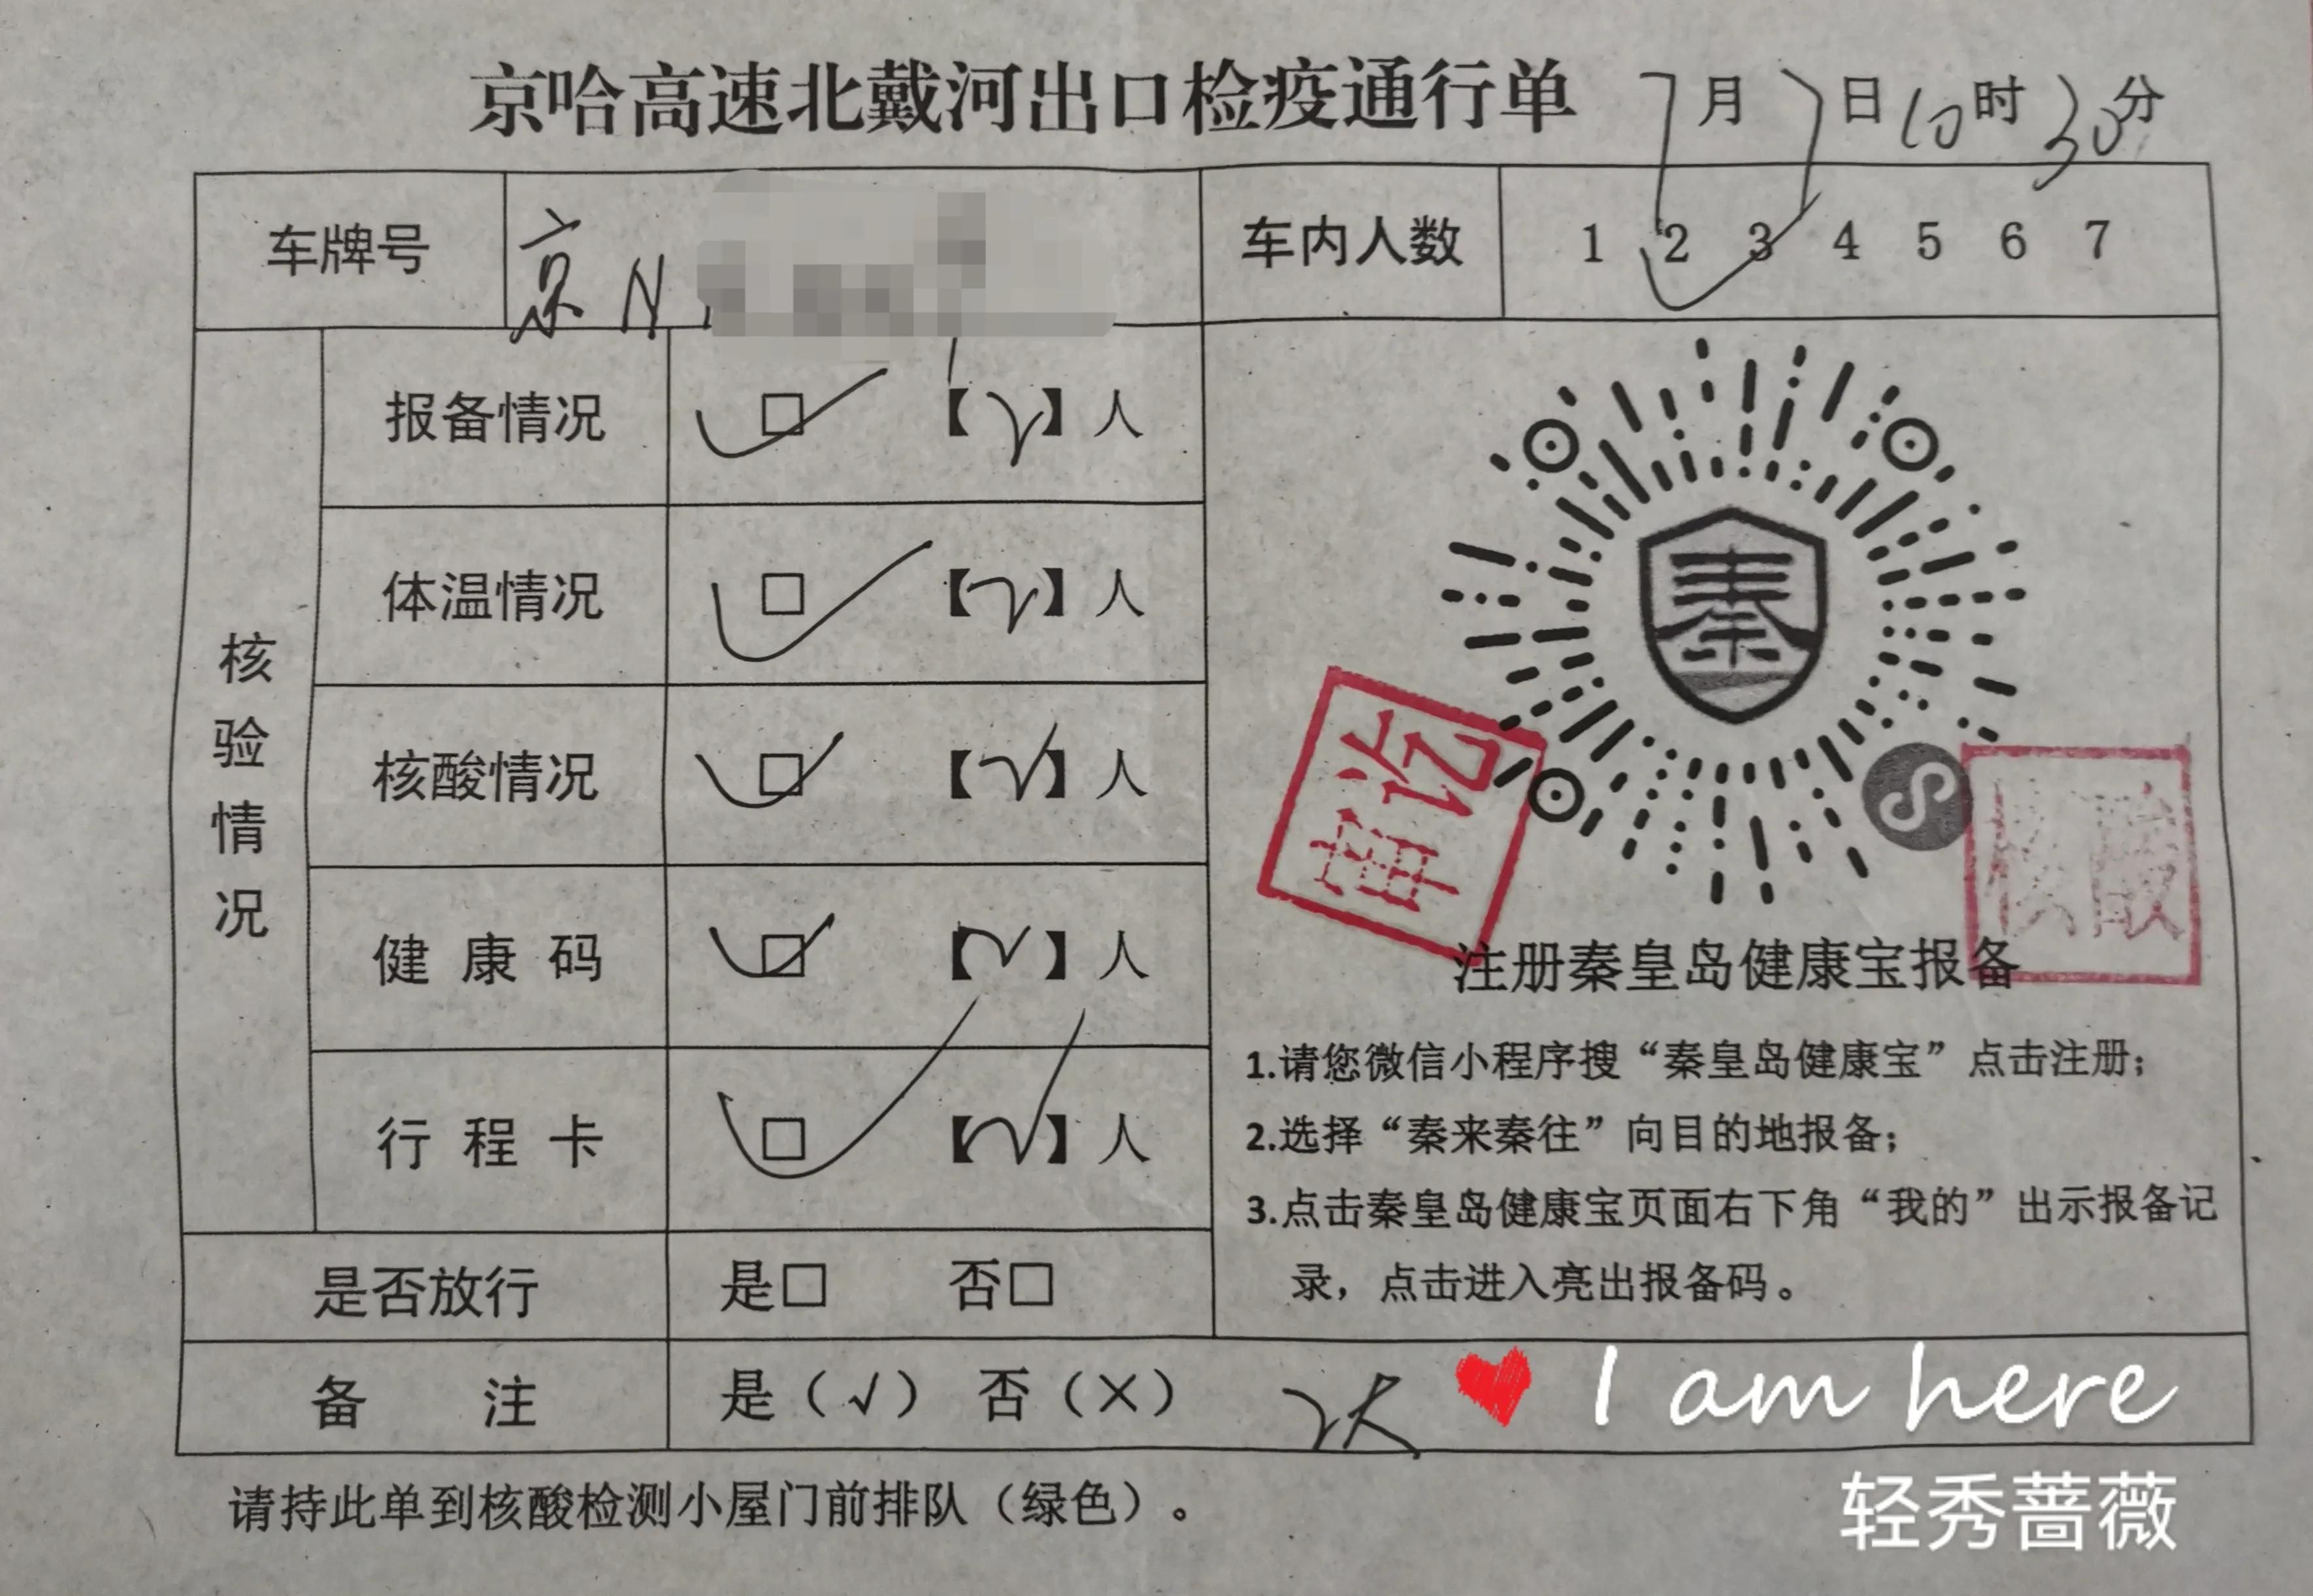 京哈高速北戴河出口检疫通行单 7月7日10时30分
车牌号 京N 车内人数 1 2 3 4 5 6 7
核验情况
报备情况 □ 【√】人
体温情况 □ 【√】人
核酸情况 □ 【√】人
健康码 □ 【√】人
行程卡 □ 【√】人
秦
核酸
注册秦皇岛健康宝报备
1.请您微信小程序搜“秦皇岛健康宝”点击注册；
2.选择“秦来秦往”向目的地报备；
3.点击秦皇岛健康宝页面右下角“我的”出示报备记
录，点击进入亮出报备码。
是否放行 是□ 否□
备注 是（√） 否（×）
I am here
请持此单到核酸检测小屋门前排队（绿色）。
轻秀蔷薇